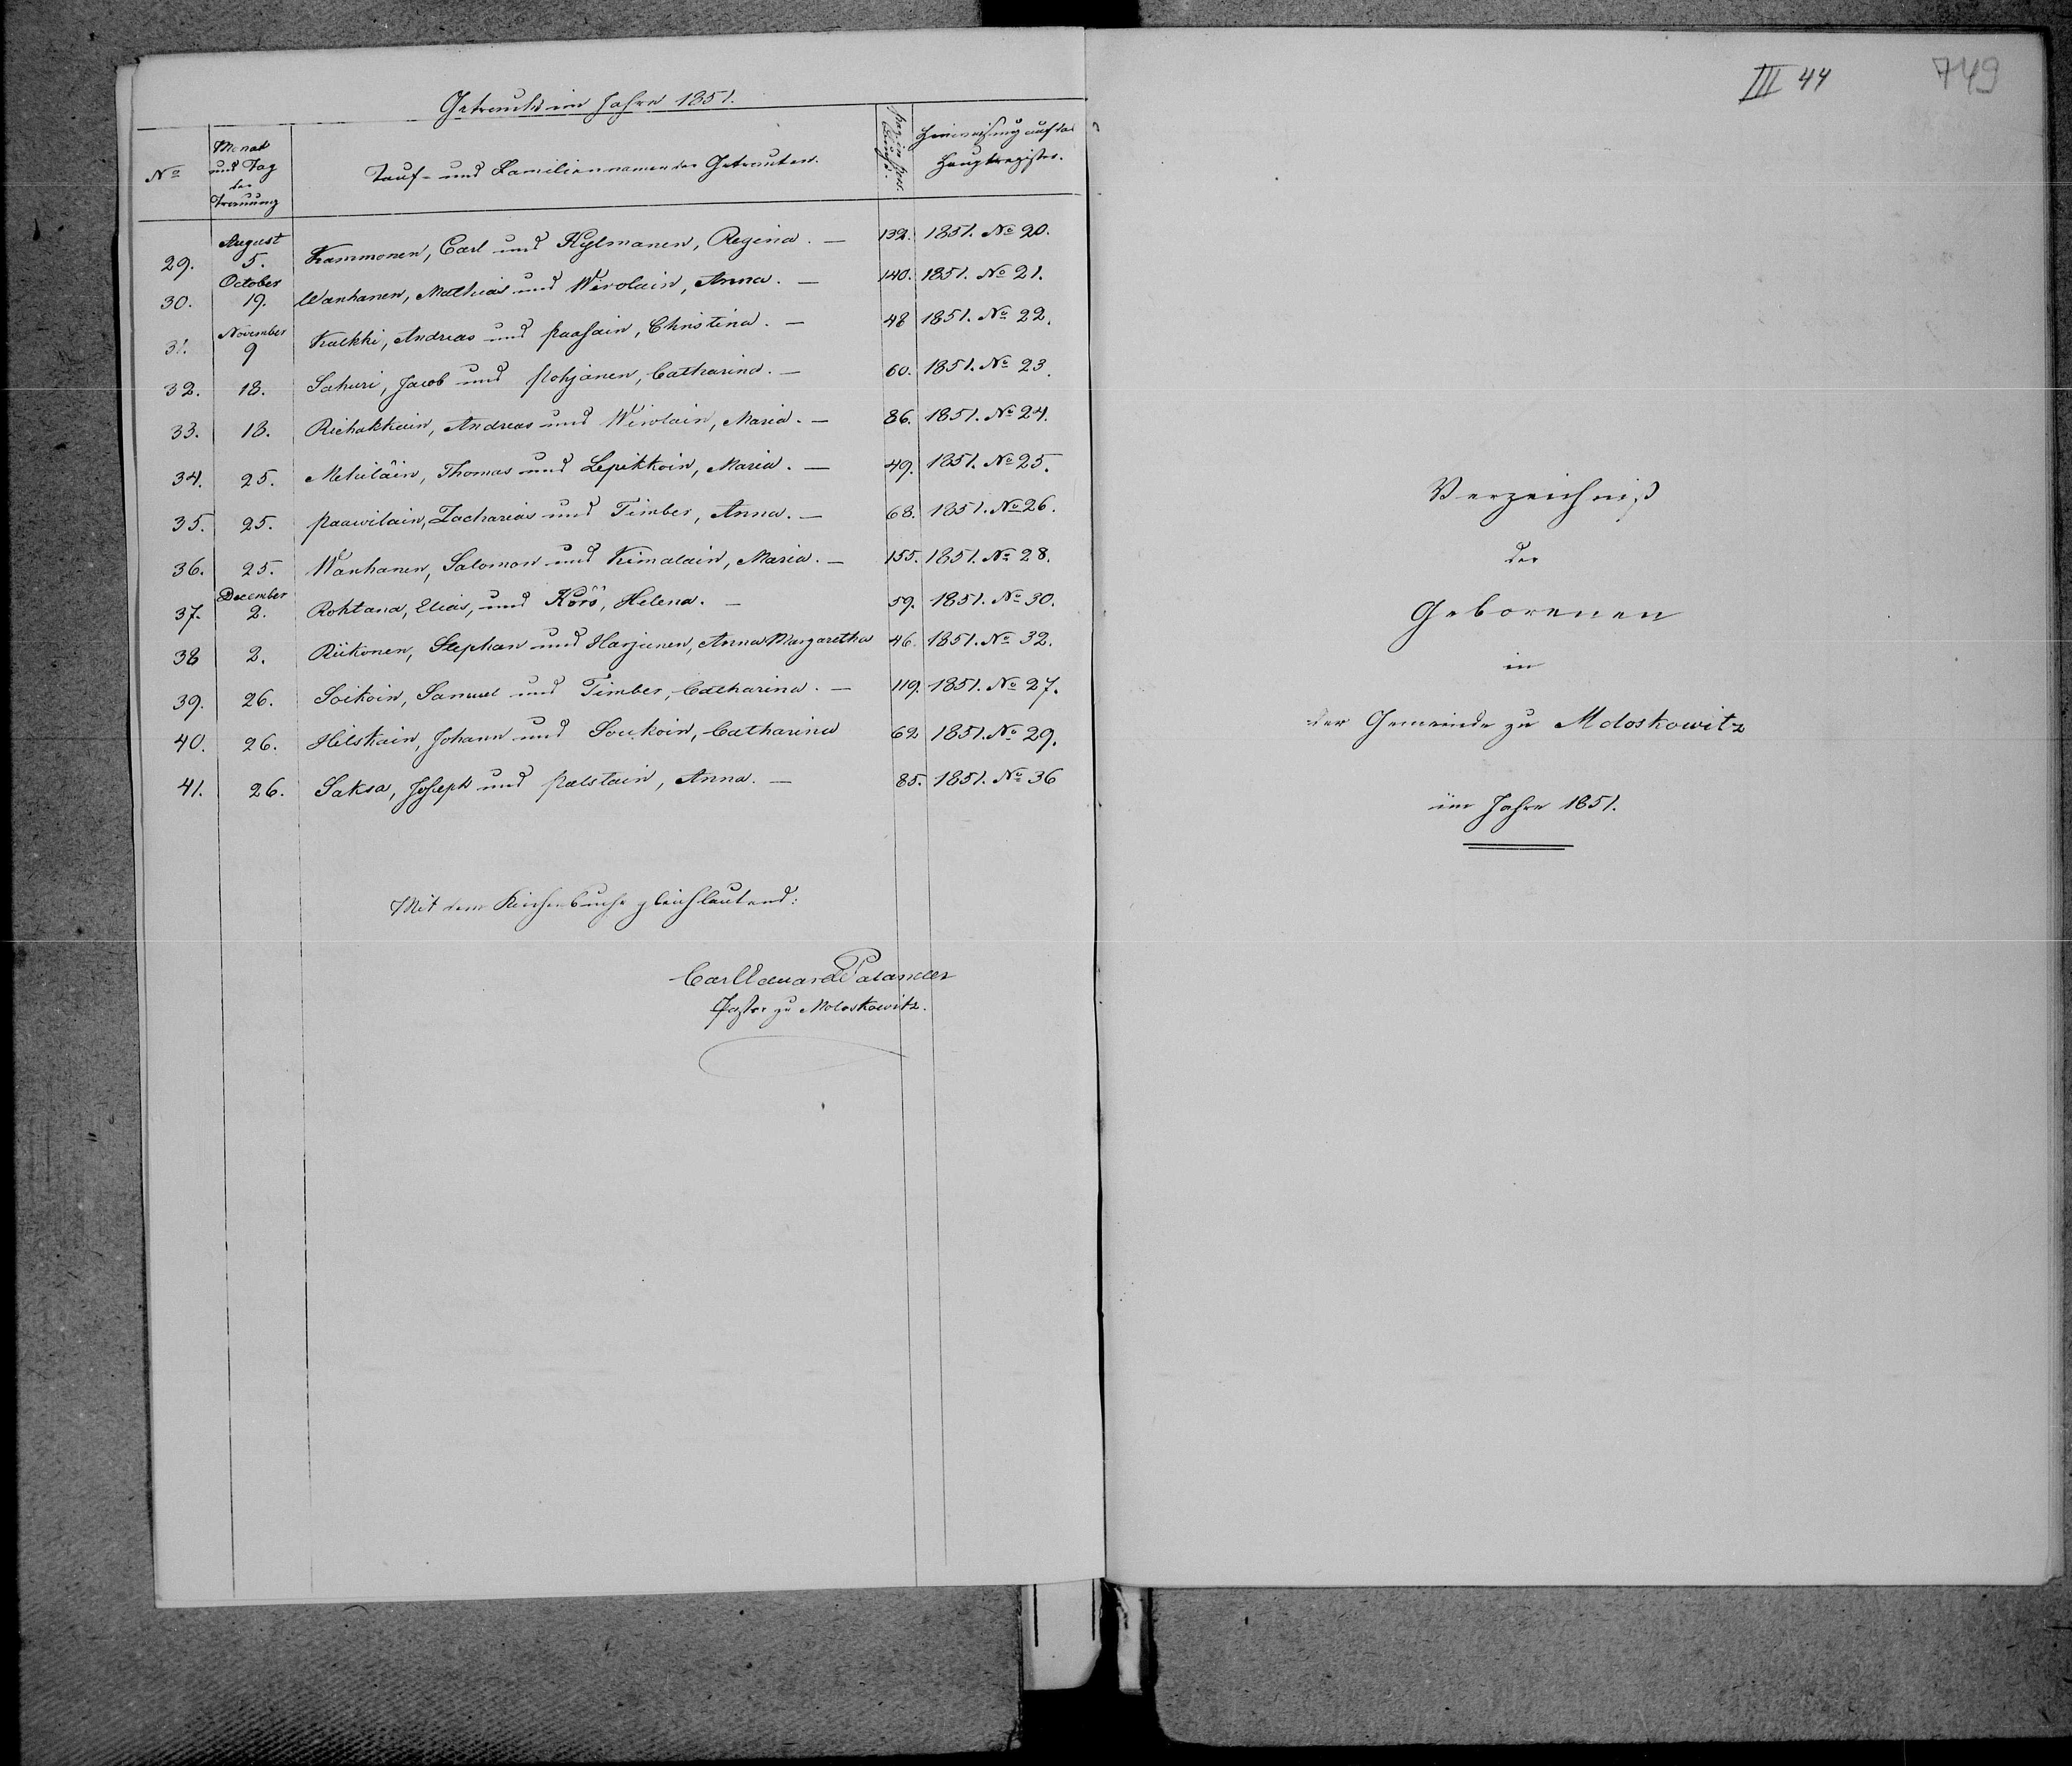 Getraute im Jahre 1851.
No Monat und Tag der Trauung Tauf- und Familiennamen der Getrauten. Pag. in Pers. Buch. Hinweisung auf das Hauptregister.
29. August 5. Kammonen, Carl und Kylmanen, Regina. — 132. 1851. No 20.
30. October 19. Wanhanen, Mathias und Wirolain, Anna. — 140. 1851. No 21.
31. November 9 Kukkki, Andreas und Paasain, Christina. — 48 1851. No 22.
32. 18. Sahuri, Jacob und Pohjanen, Catharina. — 60. 1851. No 23.
33. 18. Riehakkain, Andreas und Wirolain, Maria. — 86. 1851. No 24.
34. 25. Mehiläin, Thomas und Lepikkoin, Maria. — 49. 1851. No 25.
35. 25. Paawilain, Zacharias und Timber, Anna. — 68. 1851. No 26.
36. 25. Wanhanen, Salomon und Kimalain, Maria. — 155. 1851. No 28.
37. December 2. Rohtana, Elias, und Körö, Helena. — 59. 1851. No 30.
38 2. Riikonen, Stephan und Harjunen, Anna Margaretha 46. 1851. No 32.
39. 26. Soikoin, Samuel und Timber, Catharina. — 119. 1851. No 27.
40. 26. Hilskain, Johann und Soukoin, Catharina 62 1851. No 29.
41. 26. Saksa, Joseph und Palstain, Anna. — 85. 1851. No 36
Mit dem Kirchenbuche gleichlautend:
Carl Eduard Palander
Pastor zu Moloskowitz.
III 44 749
Verzeichniß
der
Geborenen
in
der Gemeinde zu Moloskowitz
im Jahre 1851.